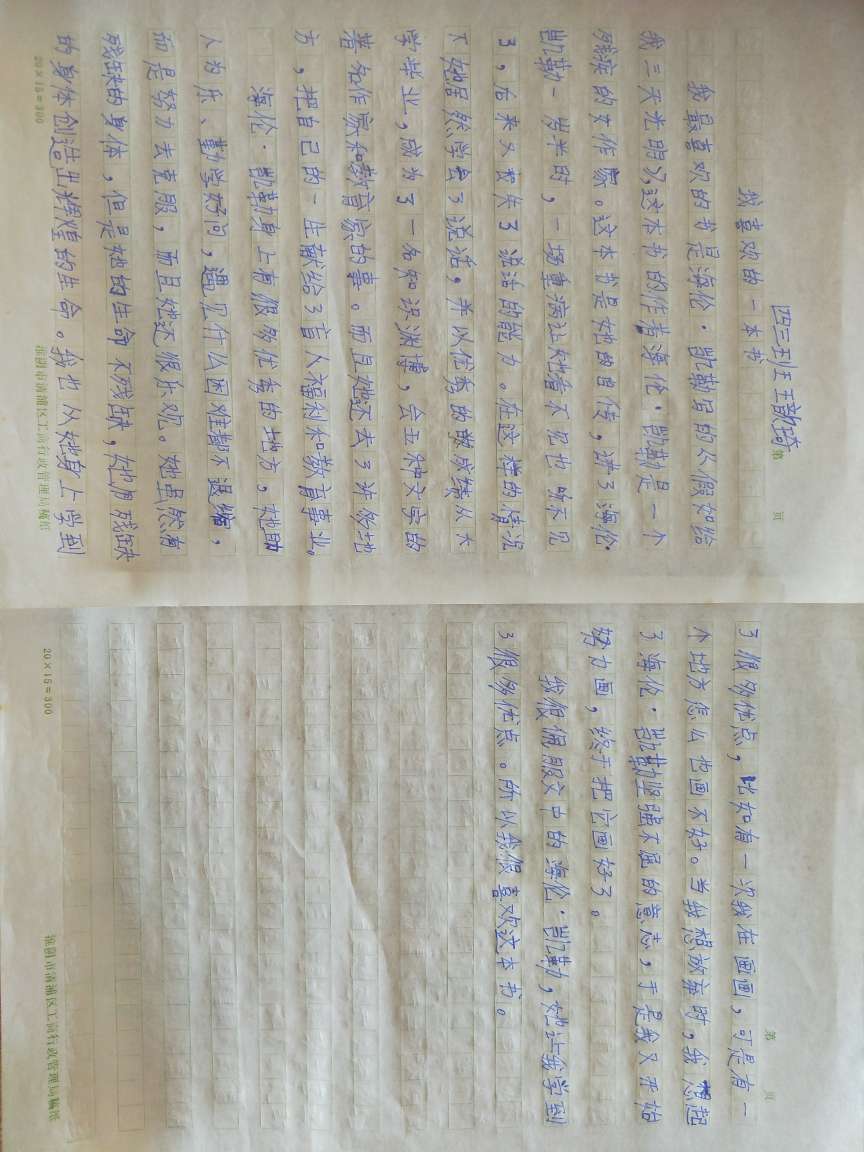 第 页
四三班 王韵琦
我喜欢的一本书
我最喜欢的书是海伦·凯勒写的《假如给
我三天光明》,这本书的作者海伦·凯勒是一个
残疾的女作家。这本书是她的自传,讲了海伦·
凯勒一岁半时,一场重病让她看不见也听不见
了,后来又丧失了说话的能力。在这样的情况
下她居然学会了说话,并以优秀的成绩从大
学毕业,成为了一名知识渊博,会五种文字的
著名作家和教育家的事。而且她还去了许多地
方,把自己的一生献给了盲人福利和教育事业。
海伦·凯勒身上有很多优秀的地方,她助
人为乐、勤学好问,遇见什么困难都不退缩,
而是努力去克服,而且她还很乐观。她虽然有
残缺的身体,但是她的生命不残缺,她用残缺
的身体创造出辉煌的生命。我也从她身上学到
20×15=300
市清浦区工商行政管理局稿纸
第 页
了很多优点,比如有一次我在画画,可是有一
个地方怎么也画不好。当我想放弃时,我想起
了海伦·凯勒坚强不屈的意志,于是我又开始
努力画,终于把它画好了。
我很佩服文中的海伦·凯勒,她让我学到
了很多优点。所以我很喜欢这本书。
20×15=300
市清浦区工商行政管理局稿纸